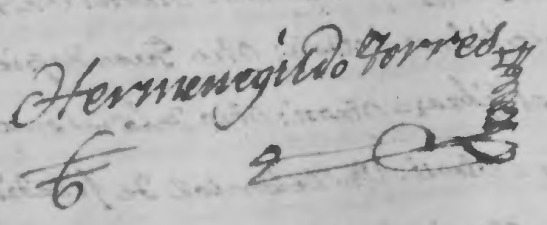 Hermenegildo Torres